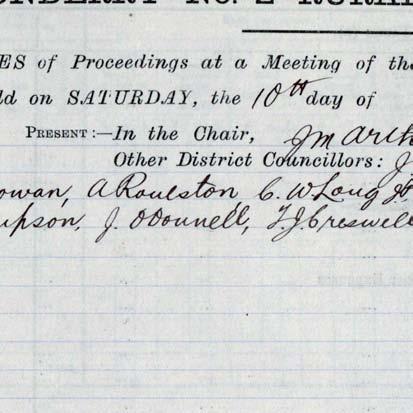 ONDERRY No. 2 RURAL
ES of Proceedings at a Meeting of the
ld on SATURDAY, the 10th day of
PRESENT:—In the Chair,
Other District Councillors: J
owan, A Roulston, C. W Long
pson, J. O'Donnell, T. J. Creswell